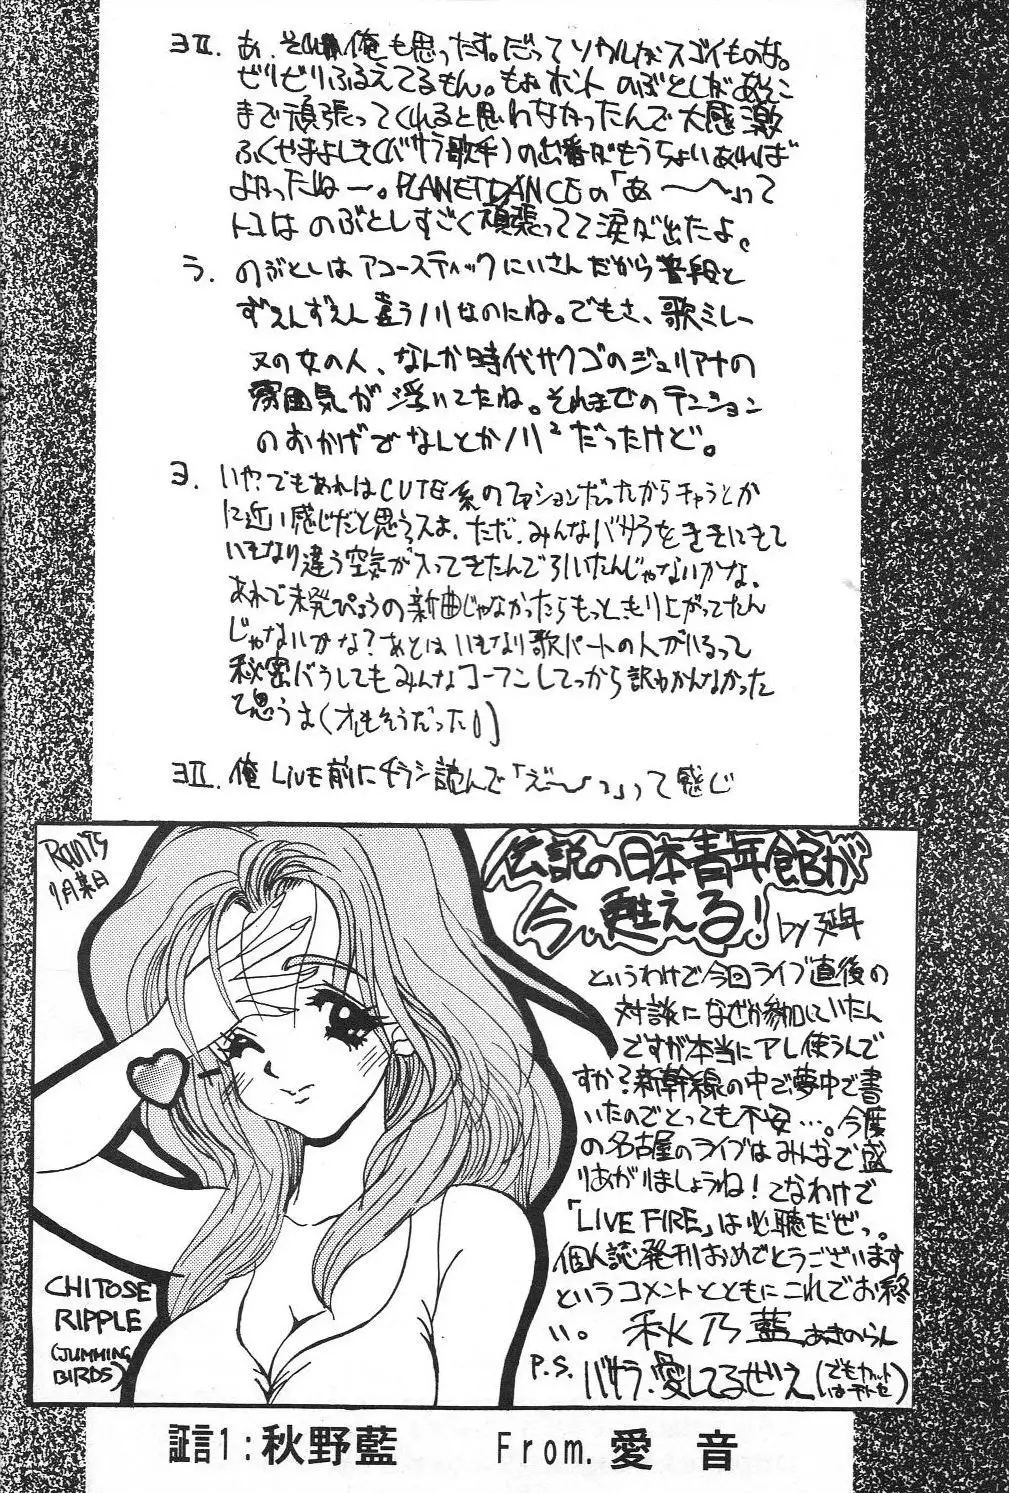 ヨII. あ、それ俺も思ったす。だってソウルがスゴイものな。
ビリビリふるえてるもん。もおホント のぶとしがあそこ
まで頑張ってくれると思わなかったんで大感激
ふくやまよしき(バサラ歌手)の出番がもうちょいあれば
よかったねー。PLANET DANCEの「あ〜〜」って
トコは のぶとしすごく頑張ってて涙が出たよ。
う. のぶとしはアコースティックにいさんだから普段と
ずえんずえん違うノリなのにね。でもさ、歌ミレー
ヌの女の人、なんか時代サクゴのジュリアナの
雰囲気が浮いてたね。それまでのテンション
のおかげでなんとかノリ²だったけど。
ヨ. いや?でもあれはCUTE系のファションだったからキャラとか
に近い感じだと思うスよ。ただ、みんなバサラをききにきて
いきなり違う空気が入ってきたんで引いたんじゃないかな。
あれで未発ぴょうの新曲じゃなかったらもっともり上がってたん
じゃないかな?あとはいきなり歌パートの人がいるって
秘密バラしてもみんなコーフンしてっから訳わかんなかった
て思うよ(オレもそうだった!)
ヨII. 俺 LIVE前にチラシ読んで「えーっ」って感じ
伝説の日本青年館が
今、甦える!
by 延年
というわけで今回ライブ直後の
対談になぜか参加していたん
ですが本当にアレ使うんで
すか?新幹線の中で夢中で書
いたのでとっても不安…。今度
の名古屋のライブはみんなで盛
りあがりましょうね!てなわけで
「LIVE FIRE」は必聴だぜっ。
個人誌発刊おめでとうございます
というコメントとともにこれでお終
い。 秋乃藍 あきのらん
P.S. バサラ、愛してるぜえ(でもカット
はチトセ)
CHITOSE
RIPPLE
(JUMMING
BIRDS)
証言1:秋野藍 From. 愛 音